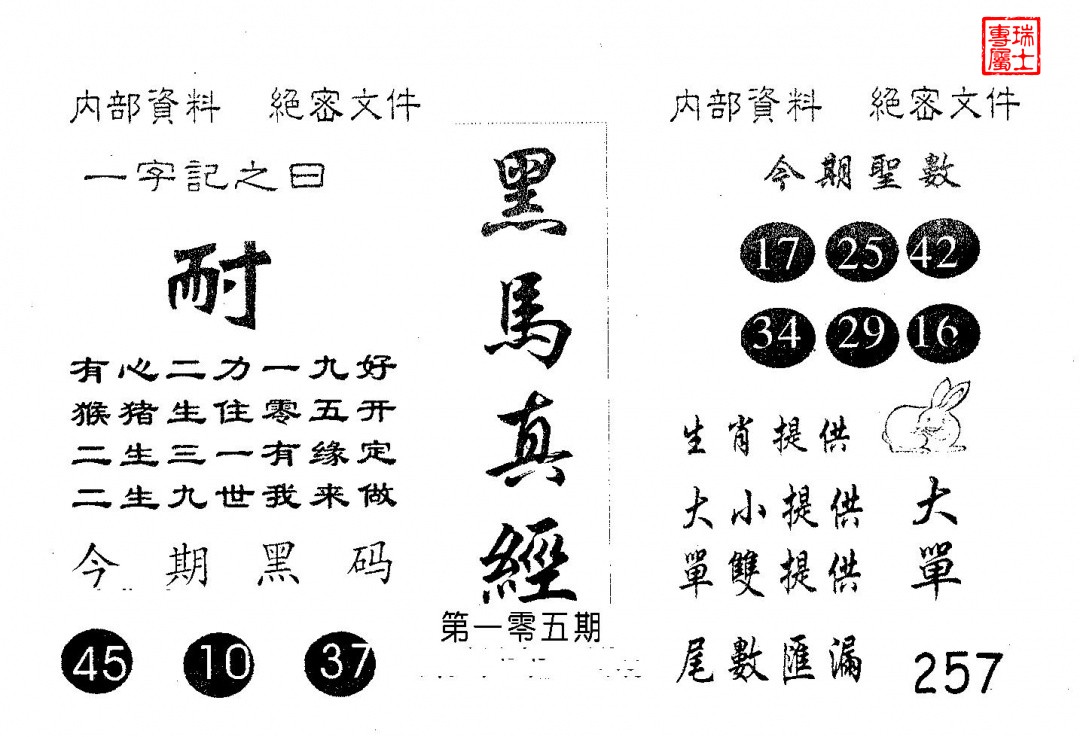 瑞士
專屬
内部資料 絕密文件
一字記之曰
耐
有心二力一九好
猴猪生住零五开
二生三一有缘定
二生九世我来做
今期黑码
45 10 37
黑馬真經
第一零五期
内部資料 絕密文件
今期聖數
17 25 42
34 29 16
生肖提供
大小提供 大
單雙提供 單
尾數匯漏 257